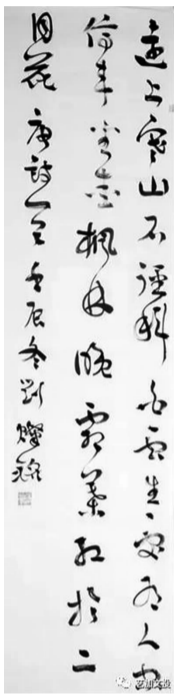 远上寒山石径斜白云生处有人家
停车坐爱枫林晚霜叶红于二
月花唐诗一首壬辰冬刘灿铭
艺加文投